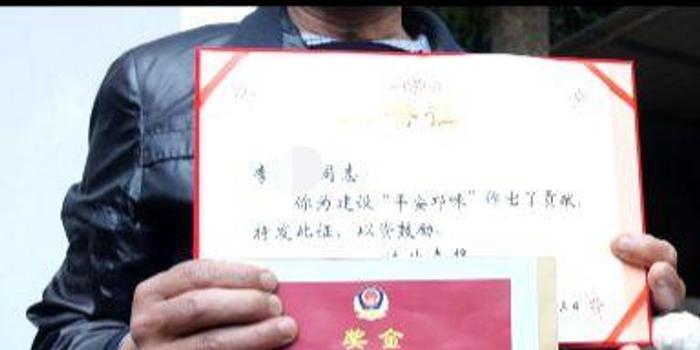 李 同志
你为建设“平安邛崃”作出了贡献，
特发此证，以资鼓励。
奖金